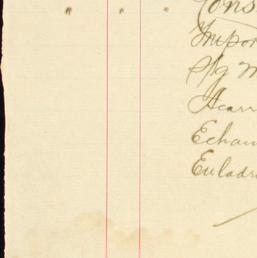 " " " Cons
Impor
S/g M
Acarr
Echan
Euladr